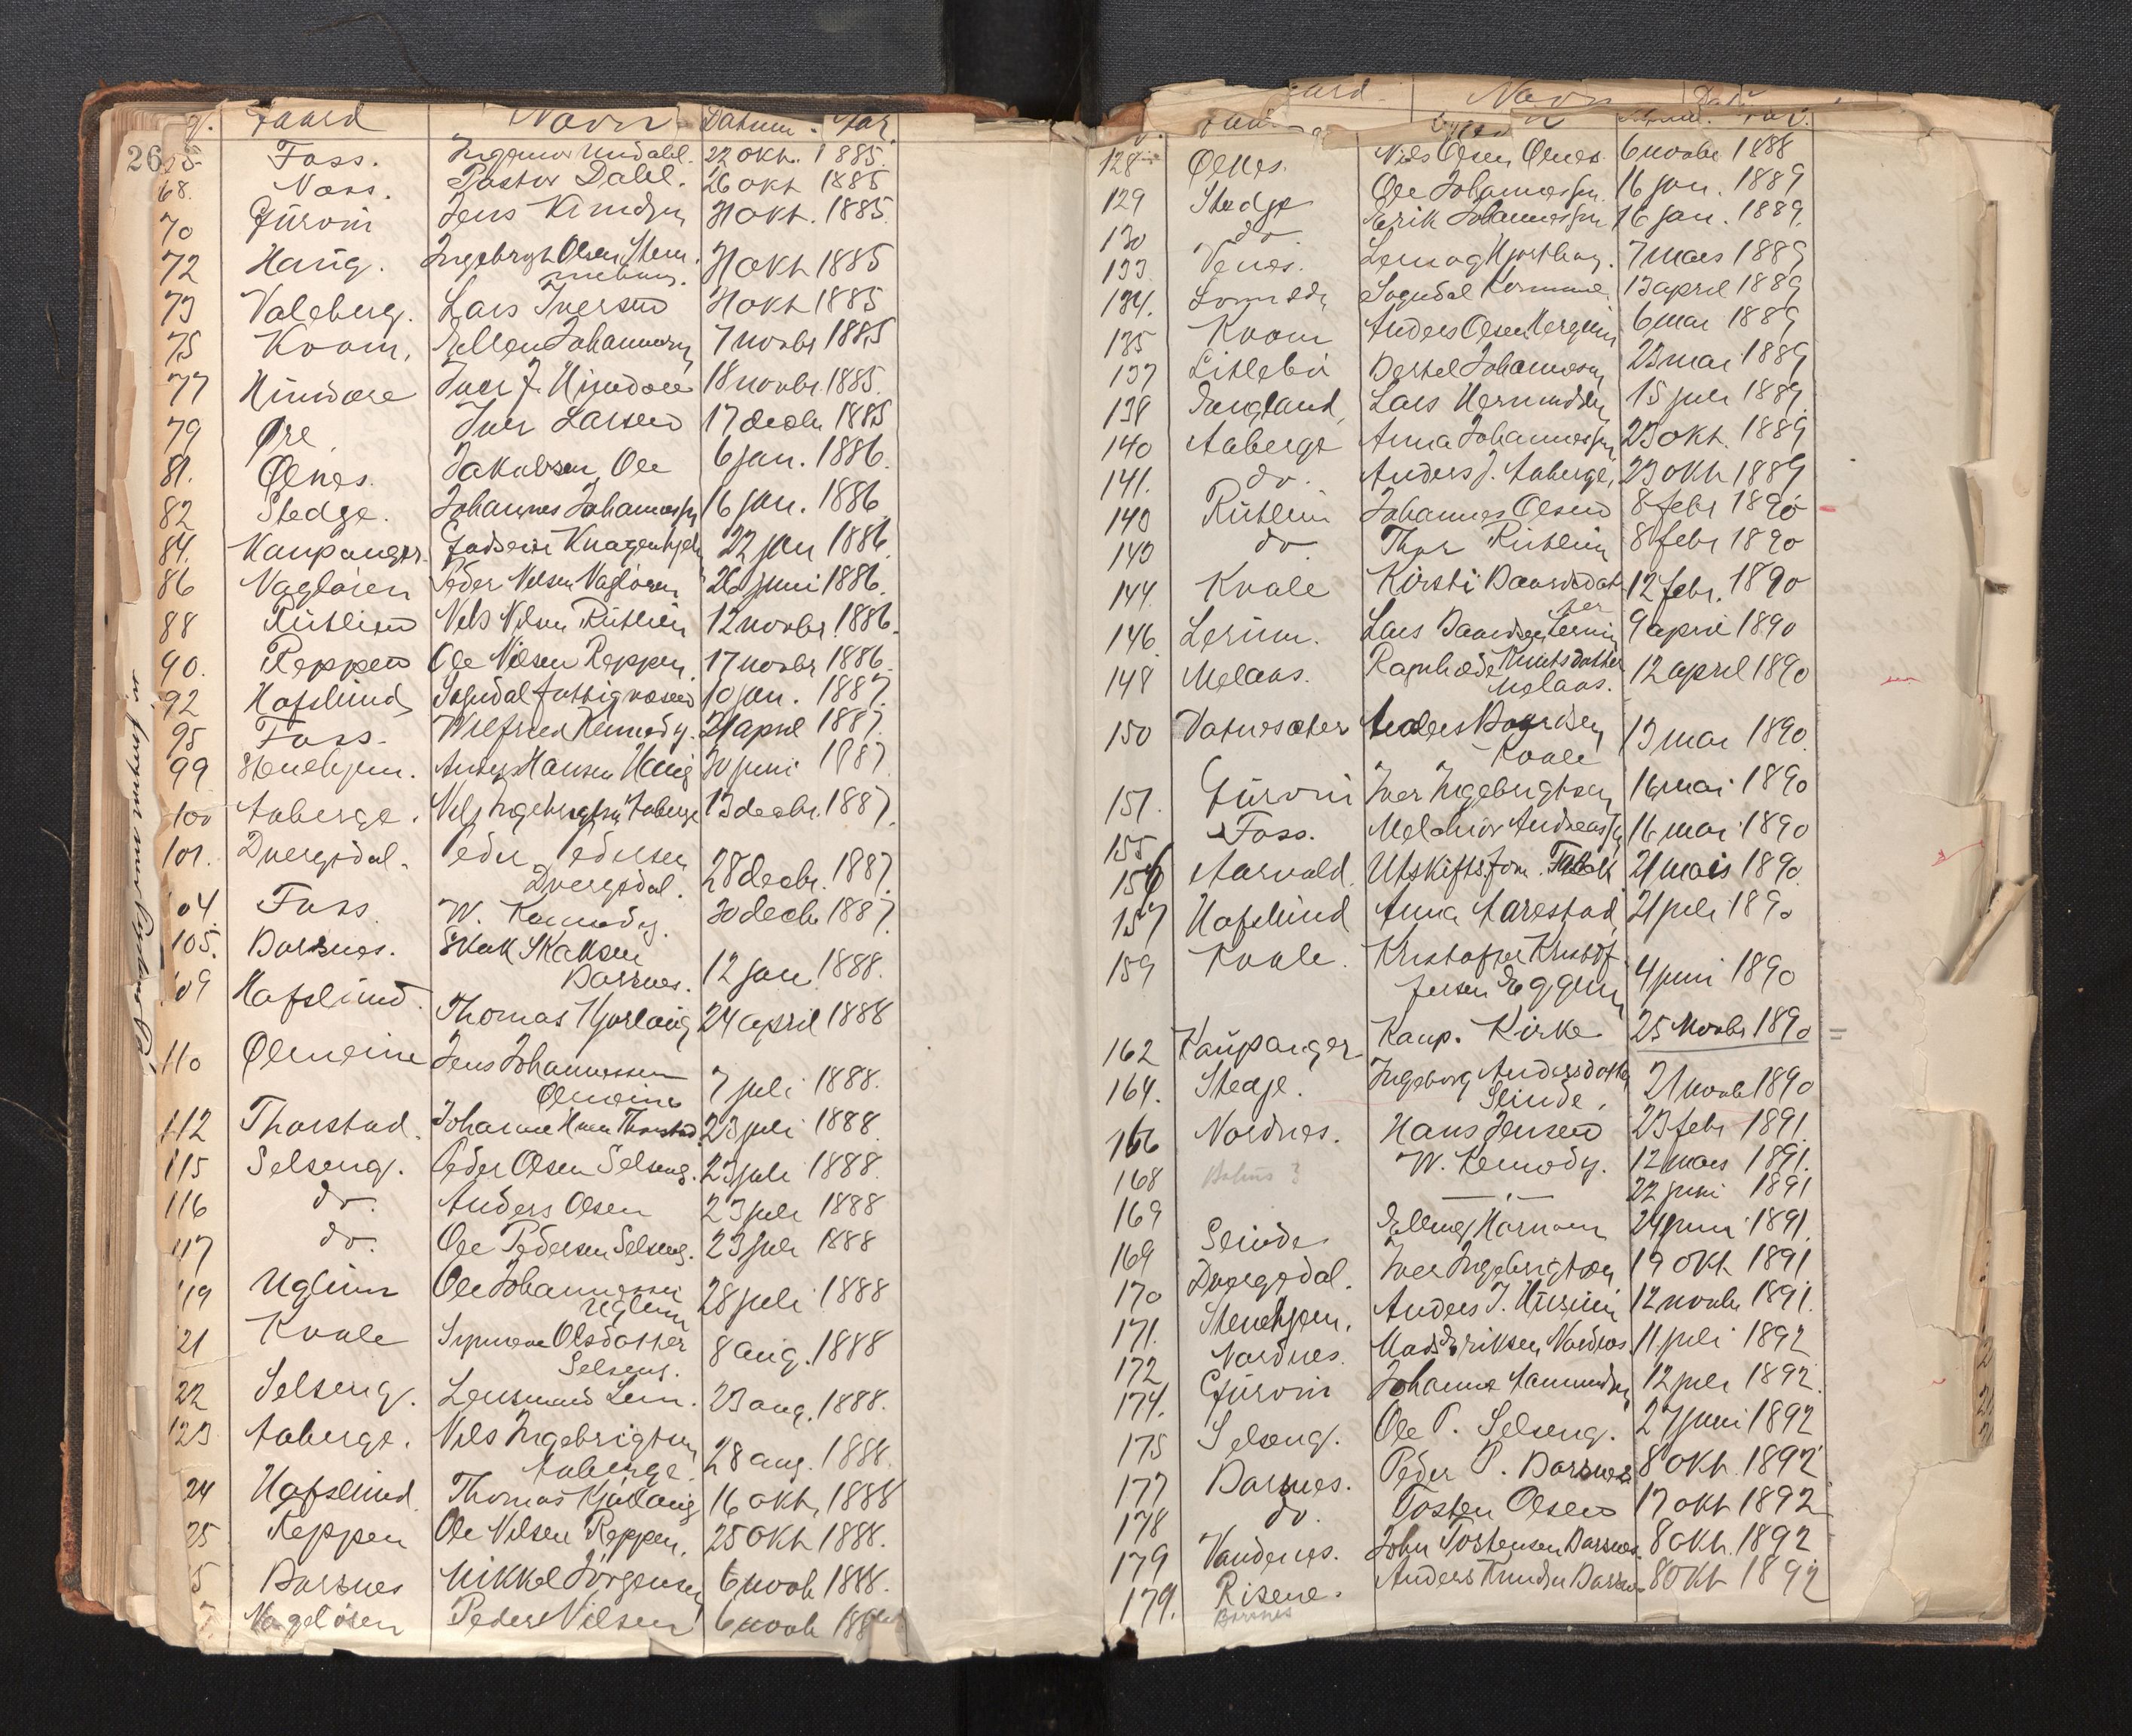 Gaard Navn Datum. Aar.
26
65 Foss. Ingeniør Undahl. 22 okt. 1885.
68. Noss. Pastor Dahl. 26 okt 1885
70 Gurvin Jens Knudsen 31 okt. 1885.
72 Haug. Ingebrigt Olsen 31 okt 1885
73 Valeberg. Lars Iversen 31 okt 1885
75 Kvam. Ellen Johannesen 7 novbr 1885
77 Hundere Iver J. Hundere 18 novbr. 1885.
79 Øre Iver Larsen 17 decbr 1885
81. Ølnes. Jakobsen, Ole 6 jan. 1886.
82 Stedge. Johannes Johannessen 16 jan. 1886
84. Kaupanger. Knagenhjelm 22 jan 1886.
86 Vagløsen Peder Nilsen Vagløsen 26 juni 1886.
88 Rutlin Nils Nilsen Rutlin 12 novbr. 1886.
90. Reppen Ole Nilsen Reppen. 17 novbr 1886.
92 Hofslund Sogndal Fattigvæsen 10 jan. 1887.
95 Foss. Wilfred Kennedy. 21 april 1887.
99 Stenehjem. Anders Hansen Haug 30 juni 1887.
100 Aaberge. Nils Ingebrigtsen Aaberge 13 decbr. 1887.
101. Dvergsdal. Peder Pedersen
Dvergsdal. 28 decbr. 1887.
104. Foss W. Kennedy. 30 decbr 1887.
105. Barsnes. Skak Skaksen
Barsnes. 12 jan. 1888.
109 Hofslund. Thomas Kjørlaug 24 april 1888
110 Ølmeim Jens Johannessen
Ølmeim 7 juli 1888.
112 Thorstad. Johannes Thorstad 23 juli 1888.
115 Selseng. Peder Olsen Selseng. 23 juli 1888.
116 do. Anders Olsen 23 juli 1888
117 do. Ole Pedersen Selseng. 23 juli 1888
119 Uglum Ole Johannessen
Uglum 28 juli 1888
21 Kvale Synneva Olsdatter
Selseng. 8 aug. 1888
22 Selseng. Lensmand Lem. 23 aug. 1888.
123 Aaberge. Nils Ingebrigtsen
Aaberge. 28 aug. 1888.
24 Hofslund. Thomas Kjørlaug 16 okt, 1888
25 Reppen Ole Nilsen Reppen. 25 okt 1888.
5 Barsnes Mikkel Jørgensen 6 novb 1888.
7 Vageløsen Peder Nilsen 6 novb 188
Gaard. Navn Dat.
128 Ølnes. Nils Olsen Ølnes. 6 novbr 1888
129 Stedge Ole Johannessen. 16 jan. 1889
130 do. Erik Johannessen 16 jan. 1889.
133 Venes. 7 mars 1889
134. Sogndal Kommune 13 april 1889
135 Kvam Anders Olsen 6 mai 1889
137 Litlebø Bertel Johannessen 23 mai 1889
138 England Lars Hermundsen 15 juli 1889.
140 Aaberge Anna Johannessen 23 okt. 1889
141. do. Anders J. Aaberge, 23 okt 1889
143 Rutlin Johannes Olsen 8 febr 1890
143 do. Thor Rutlin 8 febr 1890
144. Kvale Kirsti Baardsdat
ter 12 febr. 1890
146. Lerum. Lars Baardsen Lerum 9 april 1890
148 Melaas. Ragnhilde Knutsdatter
Melaas. 12 april 1890
150 Vatnesæter Anders Baardsen
Kvale 13 mai 1890.
151. Gurvin Iver Ingebrigtsen 16 mai 1890
155 Foss. Melchior Andreassen 16 mai 1890
156 Aarvold. Utskiftsfom. 21 mars 1890.
157 Hofslund Anna Aarestad 21 juli 1890
159 Kvale. Kristofer Kristof
fersen Eggum 4 juni 1890
162 Kaupanger Kaup. Kirke 25 Novbr 1890 =
164. Stedje. Ingeborg Andersdatter
Slinde. 21 novb 1890
166 Nordnes. Hans Jensen 23 febr 1891.
168 W. Kennedy. 12 mars 1891.
169 — " — 22 juni 1891
169 Slinde 24 juni 1891.
170 Dvergsdal. Iver Ingebrigtsen 19 okt 1891
171. Stenehjem. Anders J. Husum 12 novbr 1891.
172 Nordnes. Mads Eriksen Nordnes. 11 juli 1892
174. Gurvin Johannes Aamundsen 12 juli 1892.
175 Selseng. Ole P. Selseng. 27 juni 1892
177 Barsnes. Peder P. Barsnes 8 okt. 1892
178 do. Tosten Olsen 17 okt 1892
179 Vandenes. John Tostensen Barsnes. 8 okt. 1892
179. Risene. Anders Knudsen Barsnes 8 okt 1892
Barsnes